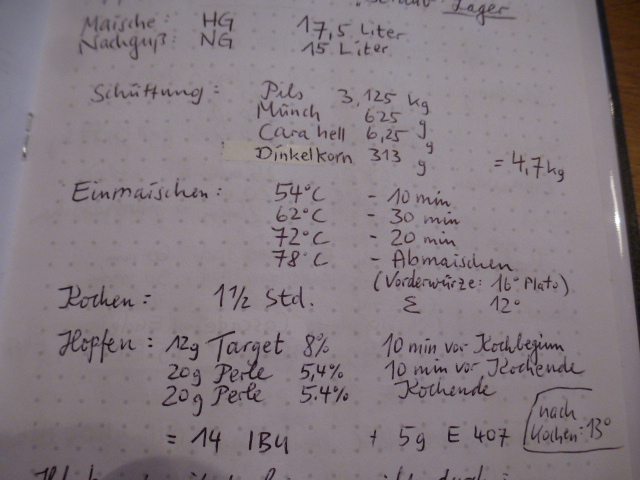 Lager
Maische: HG 17,5 Liter
Nachguß: NG 15 Liter
Schüttung: Pils 3,125 kg
Münch 625 g
Carahell 6,25 g
Dinkelkorn 313 g = 4,7 kg
Einmaischen: 54°C - 10 min
62°C - 30 min
72°C - 20 min
78°C - Abmaischen
(Vorderwürze: 16° Plato)
Kochen: 1 1/2 Std. Σ 12°
Hopfen: 12g Target 8% 10 min vor Kochbeginn
20g Perle 5,4% 10 min vor Kochende
20g Perle 5.4% Kochende
= 14 IBU + 5g E 407
nach
Kochen: 13°